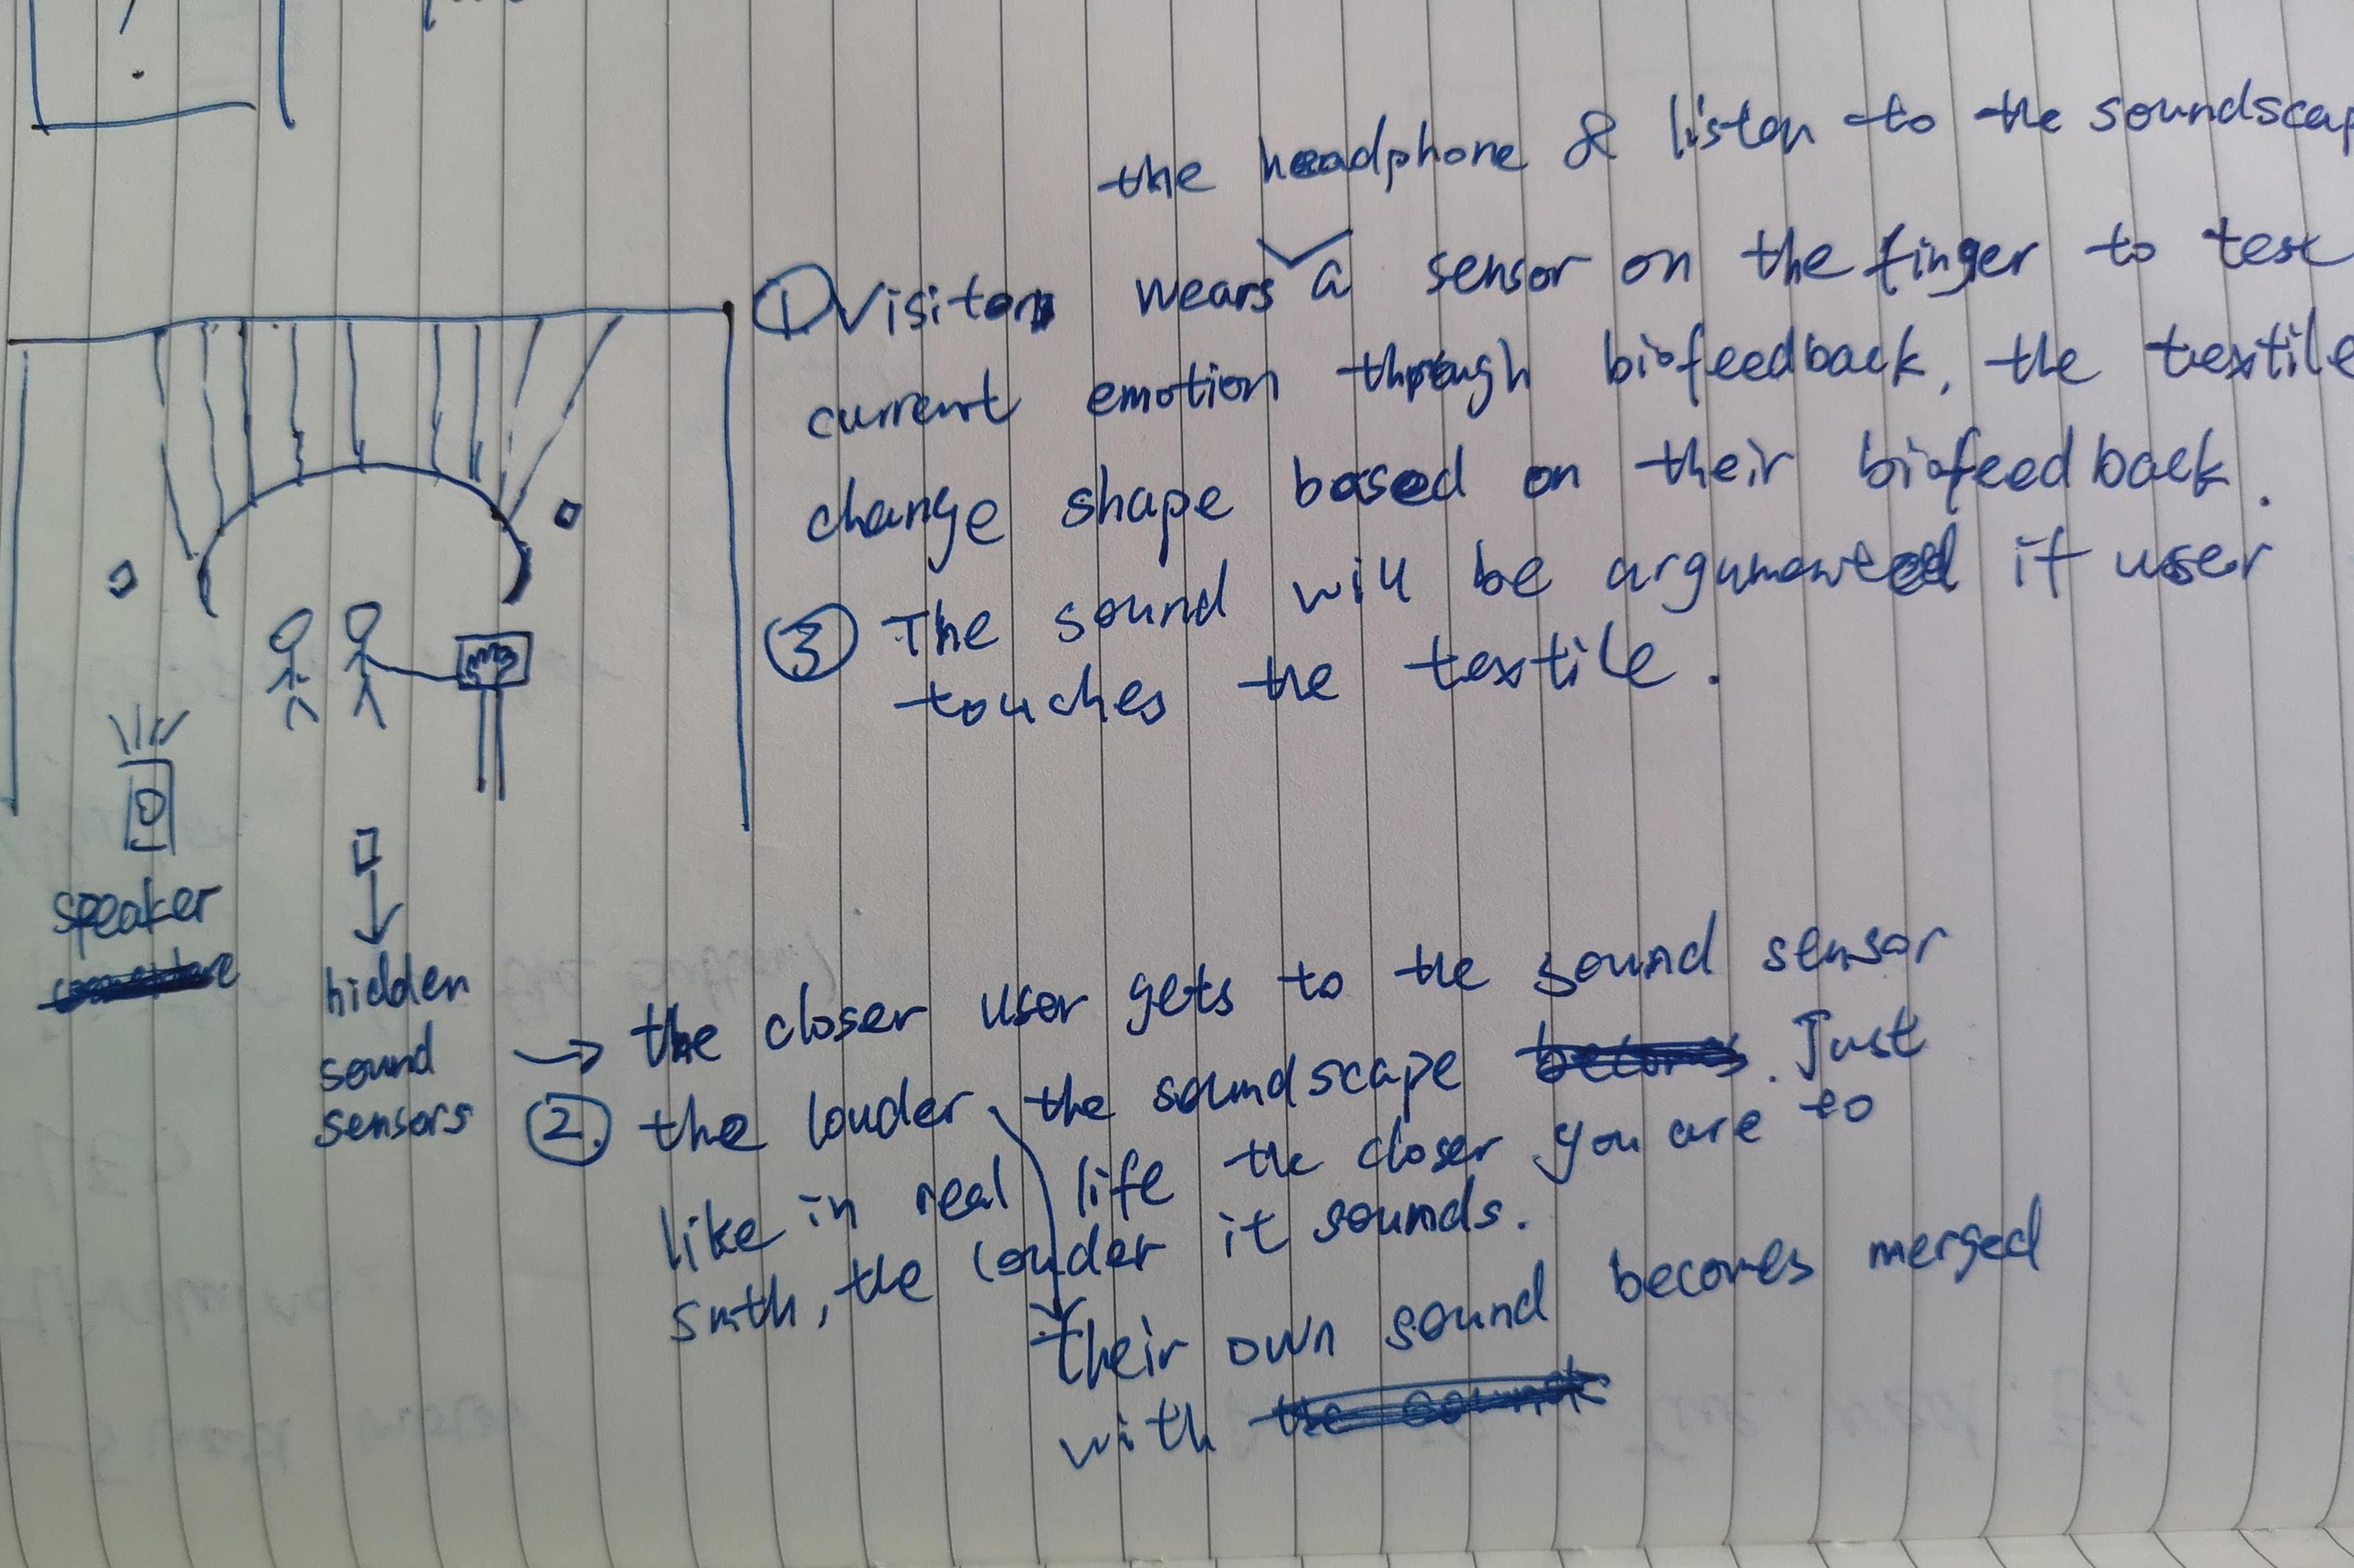 the headphone & listen to the soundscap
① Visitors wears a sensor on the finger to test
current emotion through biofeedback, the textile
change shape based on their biofeedback.
③ The sound will be argumented if user
touches the textile.
speaker
hidden
sound
sensors
→ the closer user gets to the sound sensor
②. the louder, the soundscape becomes. Just
like in real life the closer you are to
smth, the louder it sounds.
their own sound becomes merged
with the sound